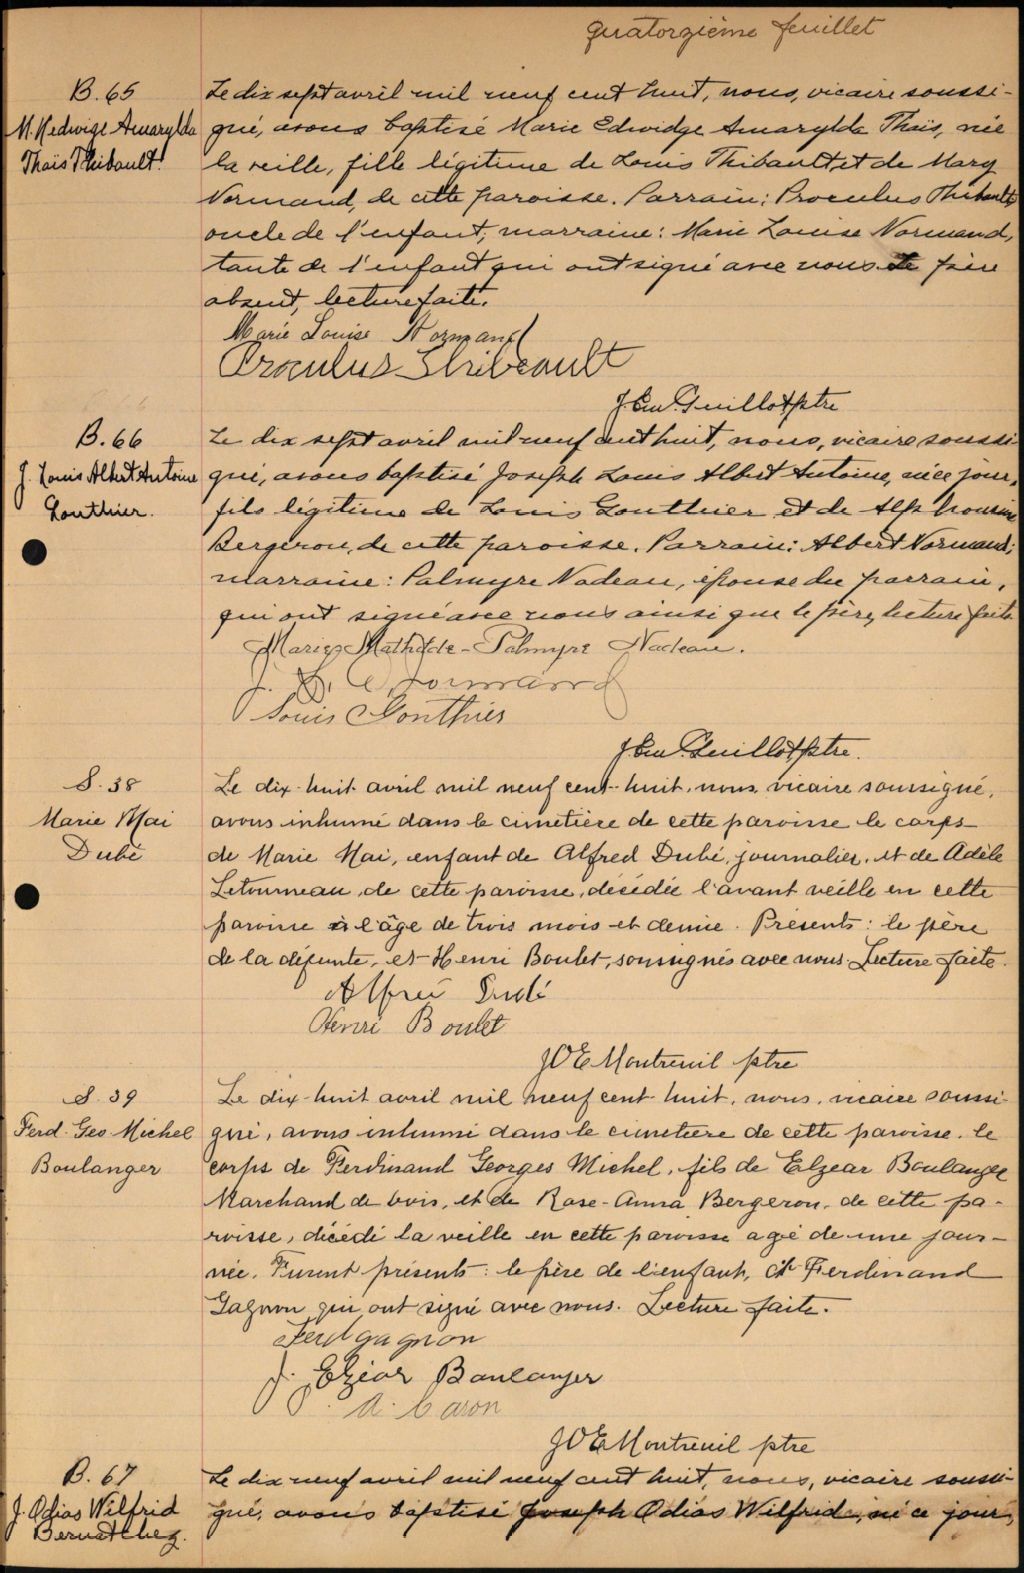 quatorzième feuillet
B. 65
M. Hedwige Amarylda
Thaïs Thibault.
Le dix sept avril mil neuf cent huit, nous, vicaire soussi-
gné, avons baptisé Marie Edwidge Amarylda Thaïs, née
la veille, fille légitime de Louis Thibault et de Mary
Normand, de cette paroisse. Parrain: Proculus Thibault,
oncle de l'enfant; marraine: Marie Louise Normand,
tante de l'enfant qui ont signé avec nous. Le père
absent, lecture faite.
Marie Louise Normand
Proculus Thibeault
J. Em. Guillot ptre
B. 66
J. Louis Albert Antoine
Gonthier.
Le dix sept avril mil neuf cent huit, nous, vicaire soussi-
gné, avons baptisé Joseph Louis Albert Antoine, né ce jour,
fils légitime de Louis Gonthier et de Alphonsine
Bergeron, de cette paroisse. Parrain: Albert Normand;
marraine: Palmyre Nadeau, épouse du parrain,
qui ont signé avec nous ainsi que le père, lecture faite
Marie Mathilde-Palmyre Nadeau.
J. Normand
Louis Gonthier
J. Em. Guillot ptre.
S. 38
Marie Mai
Dubé
Le dix-huit avril mil neuf cent-huit, nous, vicaire soussigné,
avons inhumé dans le cimetière de cette paroisse le corps
de Marie Mai, enfant de Alfred Dubé, journalier, et de Adèle
Letourneau, de cette paroisse, décédée l'avant veille en cette
paroisse à l'âge de trois mois et demie. Présents: le père
de la défunte, et Henri Boulet, soussignés avec nous. Lecture faite.
Alfred Dubé
Henri Boulet
JOE Montreuil ptre
S. 39
Ferd. Geo. Michel
Boulanger
Le dix-huit avril mil neuf cent-huit, nous, vicaire soussi-
gné, avons inhumé dans le cimetière de cette paroisse, le
corps de Ferdinand Georges Michel, fils de Elzear Boulanger
Marchand de bois, et de Rose-Anna Bergeron, de cette pa-
roisse, décédé la veille en cette paroisse agé de une jour-
née. Furent présents: le père de l'enfant, et Ferdinand
Gagnon qui ont signé avec nous. Lecture faite.
Ferd gagnon
J. Elzéar Boulanger
A. Caron
JOE Montreuil ptre
B. 67
J. Odias Wilfrid
Bernatchez.
Le dix neuf avril mil neuf cent huit, nous, vicaire soussi-
gné, avons baptisé Joseph Odias Wilfrid, né ce jour,